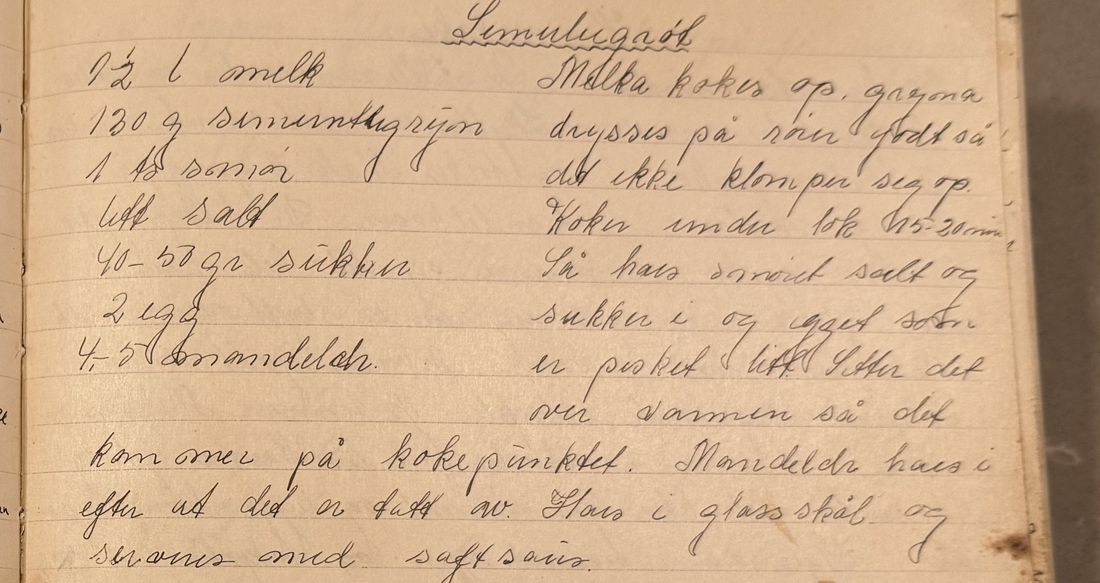 Semulugrøt
1½ l melk
130 g semuntlugryn
1 ts smør
litt salt
40-50 gr sukker
2 egg
4-5 mandeldr.
Melka kokes op. gryna
drysses på rører godt så
det ikke klomper seg op.
Koker under lok 15-20 min
Så haes smøret salt og
sukker i og egget som
er pisket litt. Setter det
over varmen så det
kommer på kokepunktet. Mandeldr haes i
efter at det er tatt av. Haes i glasskål og
serveres med saftsaus.